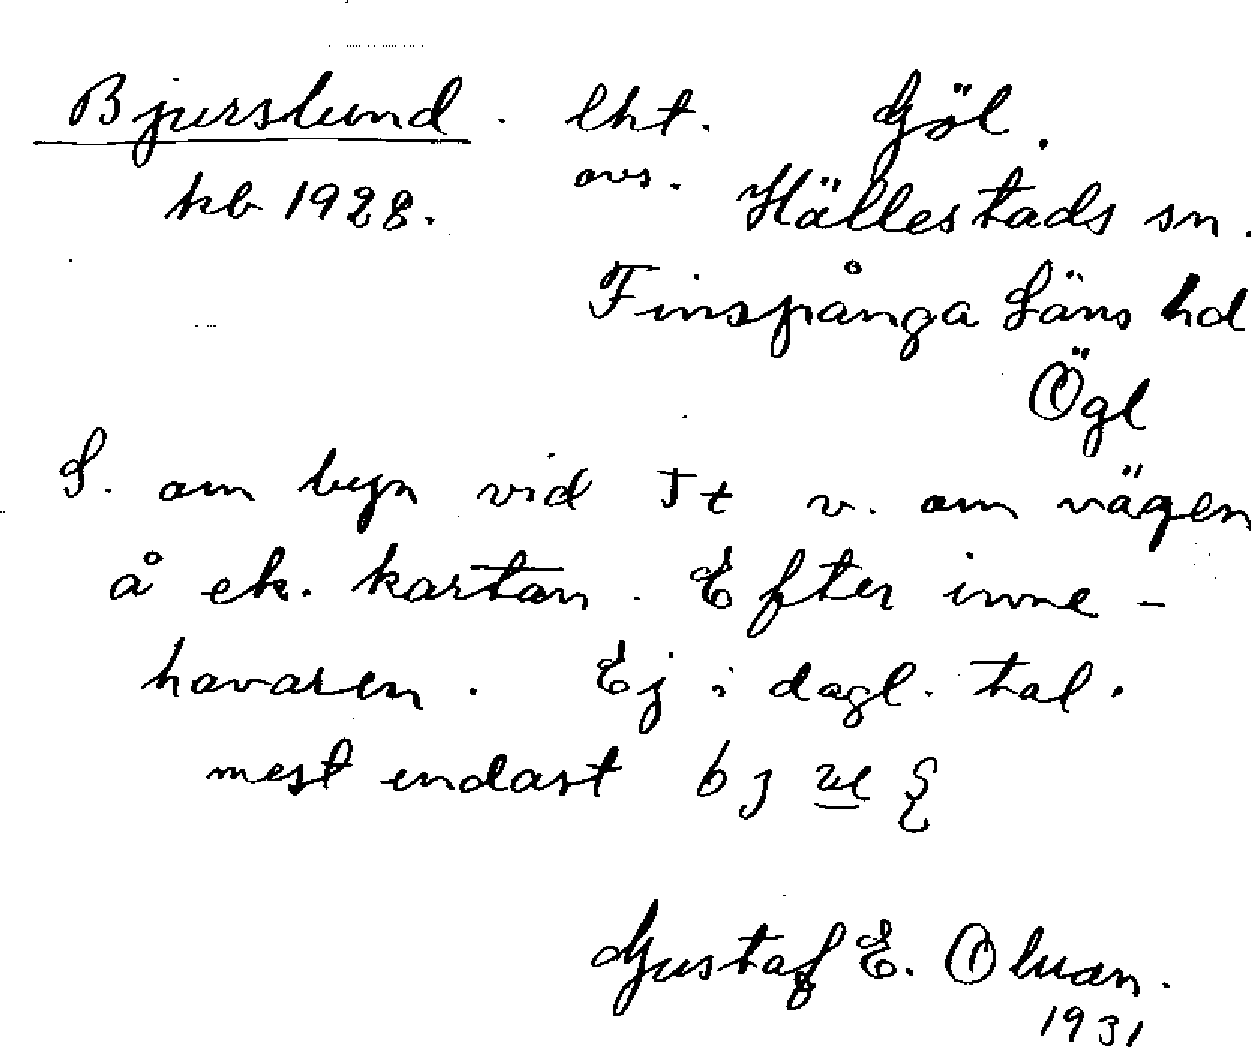 Bjurslund. lht. Göl.
kb 1928. avs. Hällestads sn.
Finspånga Läns hd
Ögl
S. om byn vid Tt v. om vägen
å ek. kartan. Efter inne-
havaren. Ej i dagl. tal.
mest endast bj
Gustaf E. Olman.
1931